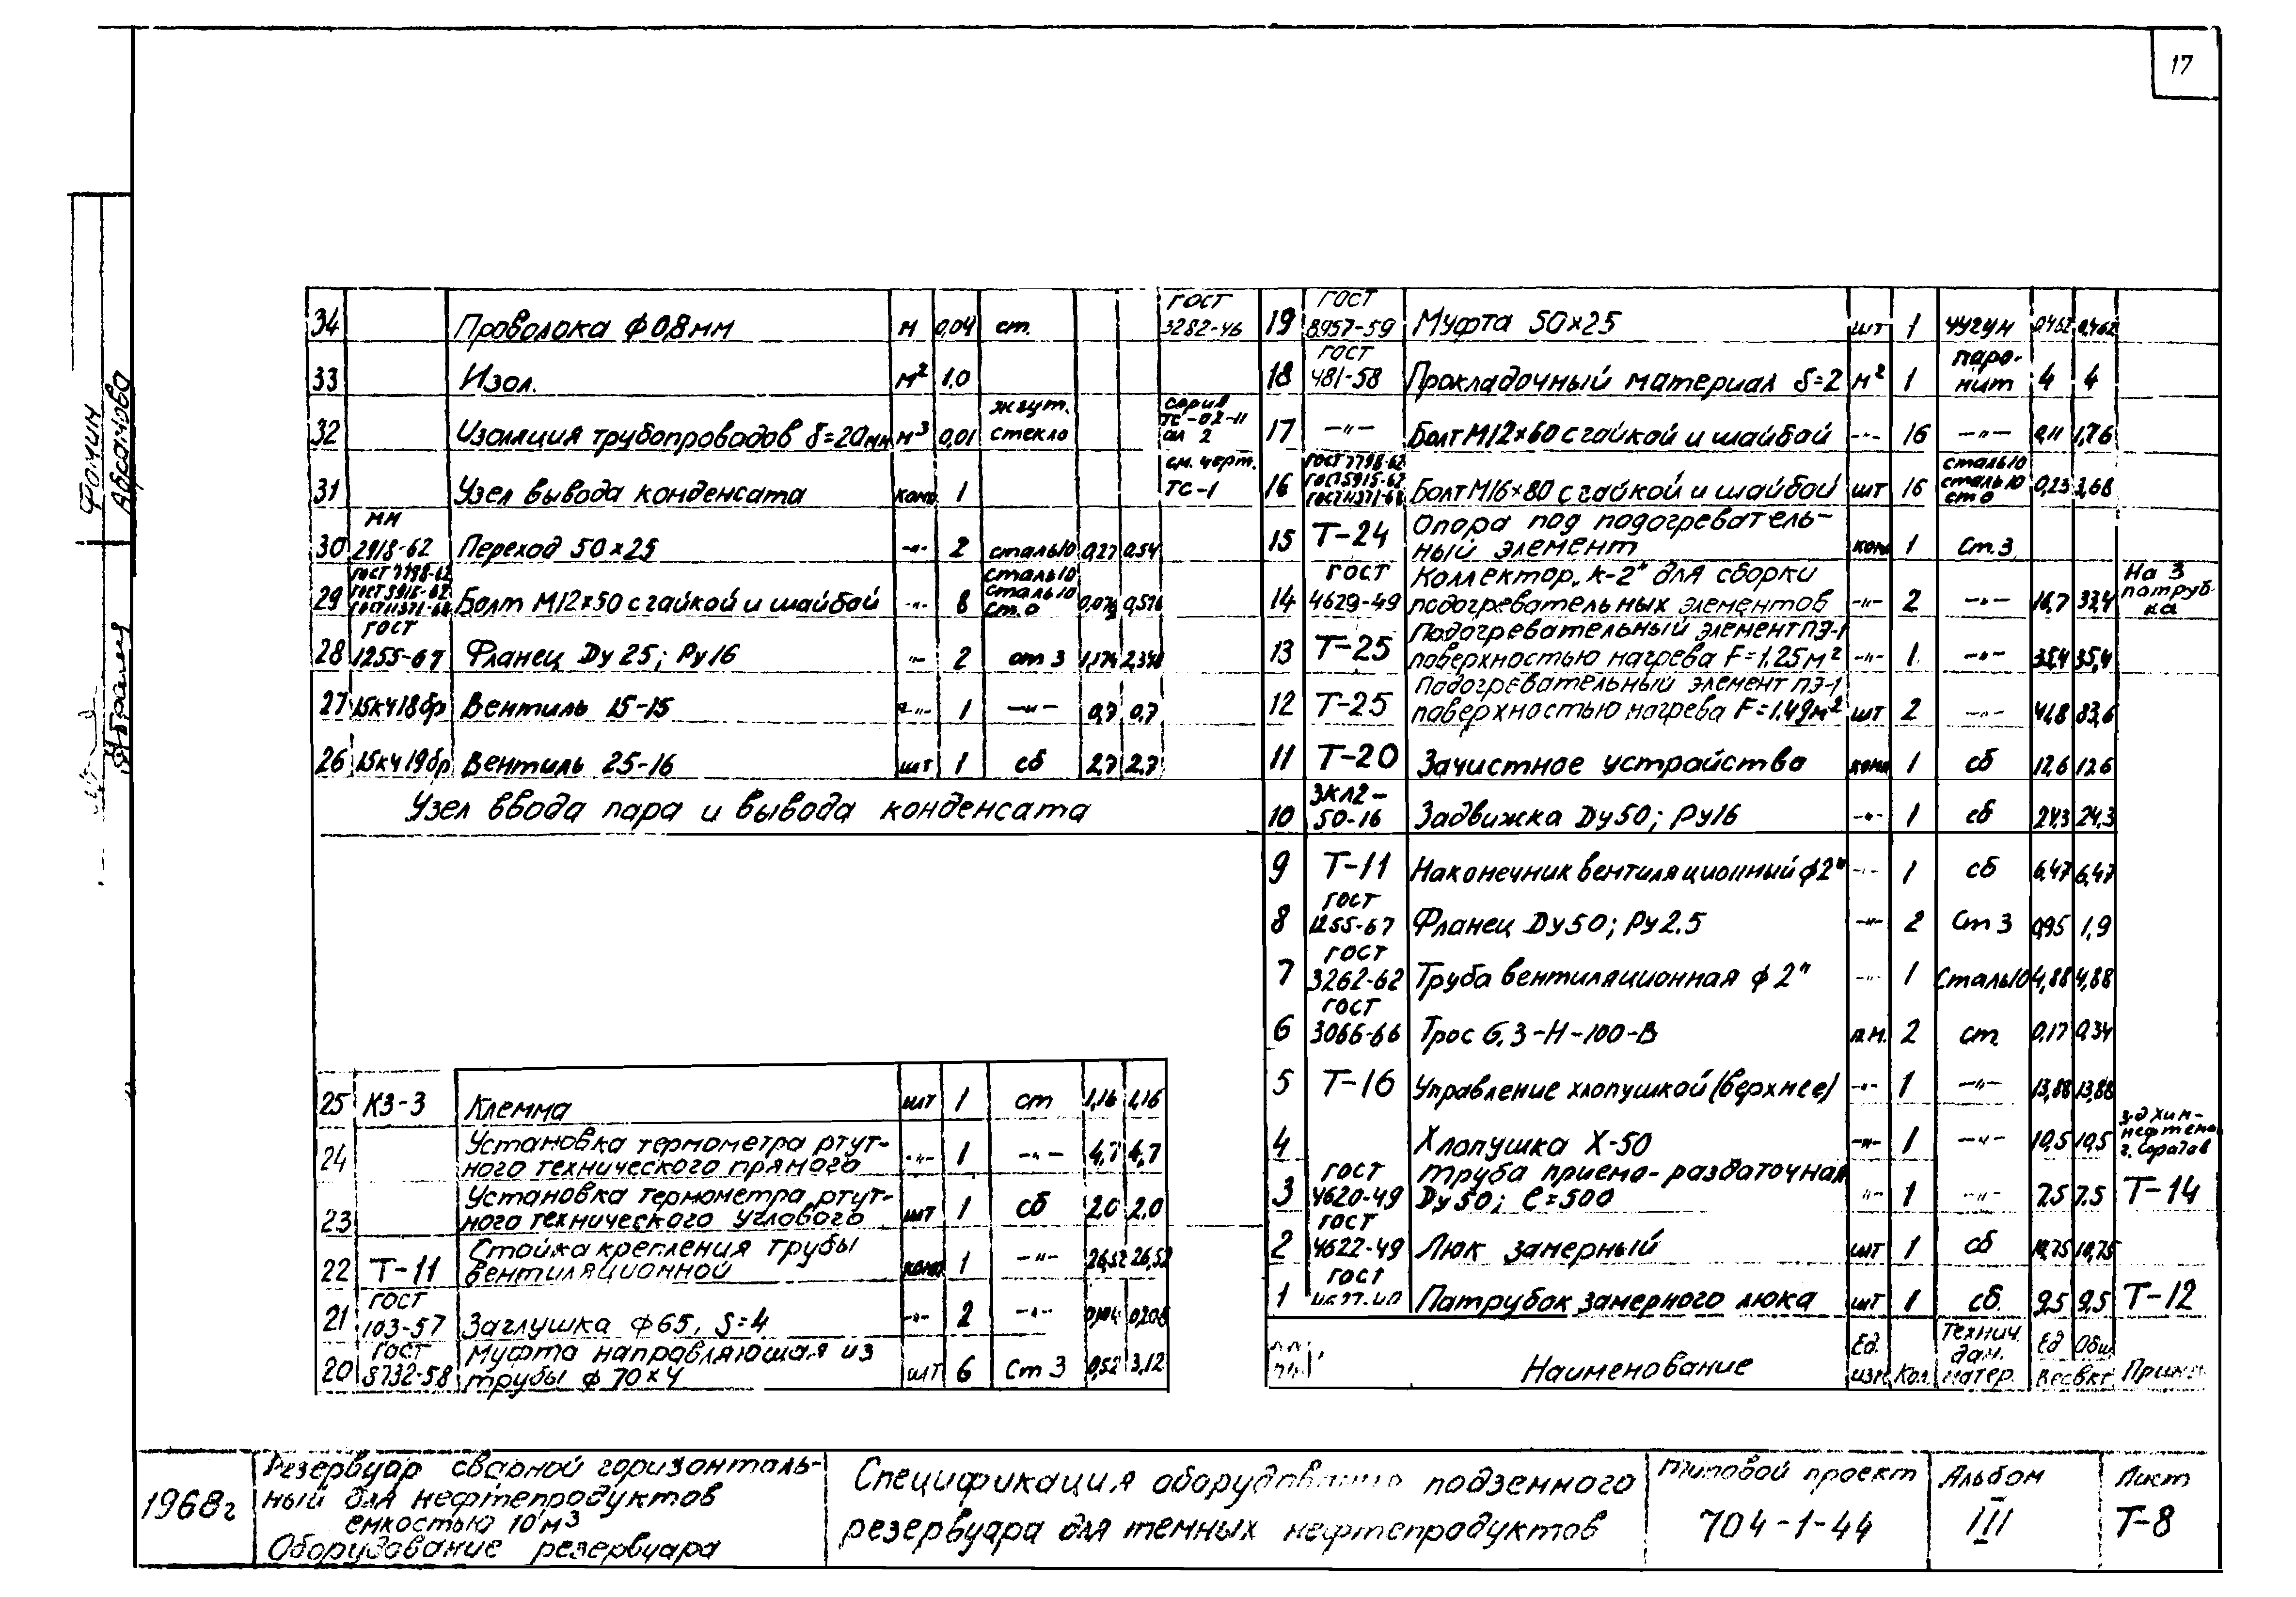 17
34 Проволока ф 0,8 мм м 0,04 ст. ГОСТ 3282-46
33 Изол. м² 1.0
32 Изоляция трубопроводов δ=20мм м³ 0,01 жгут. стекло серия ТС-02-11 ал 2
31 Узел вывода конденсата комп 1 см. черт. ТС-1
30 МН 2918-62 Переход 50×25 -"- 2 сталь10 0,27 0,54
29 ГОСТ 7798-62 ГОСТ 5915-62 ГОСТ 11371-68 Болт М12×50 с гайкой и шайбой -"- 8 сталь10 сталь10 ст.0 0,576
28 ГОСТ 1255-67 Фланец Dу 25; Ру16 -"- 2 ст 3 1,174 2,348
27 15кч18бр Вентиль 15-15 -"- 1 -"- 0,7 0,7
26 15кч19бр Вентиль 25-16 шт 1 сб 2,7 2,7
Узел ввода пара и вывода конденсата
25 КЗ-3 Клемма шт 1 ст 1,16 1,16
24 Установка термометра ртут-
ного технического прямого -"- 1 -"- 4,7 4,7
23 Установка термометра ртут-
ного технического углового шт 1 сб 2,0 2,0
22 Т-11 Стойка крепления трубы
вентиляционной комп 1 -"- 26,52 26,52
21 ГОСТ 103-57 Заглушка ф 65, S=4 -"- 2 -"- 0,104 0,208
20 ГОСТ 8732-58 Муфта направляющая из
трубы ф 70×4 шт 6 Ст 3 0,52 3,12
19 ГОСТ 8957-59 Муфта 50×25 шт 1 чугун 0,462 0,462
18 ГОСТ 481-58 Прокладочный материал δ=2 м² 1 паро-
нит 4 4
17 -"- Болт М12×60 с гайкой и шайбой -"- 16 -"- 0,11 1,76
16 ГОСТ 7798-62 ГОСТ 5915-62 ГОСТ 11371-68 Болт М16×80 с гайкой и шайбой шт 16 сталь10 сталь10 ст 0 0,23 3,68
15 Т-24 Опора под подогреватель-
ный элемент комп 1 Ст.3
14 ГОСТ 4629-49 Коллектор „К-2" для сборки
подогревательных элементов -"- 2 -"- 16,7 33,4 На 3 патруб-
ка
13 Т-25 Подогревательный элемент ПЭ-1
поверхностью нагрева F=1.25м² -"- 1 -"- 35,4 35,4
12 Т-25 Подогревательный элемент ПЭ-1
поверхностью нагрева F=1.49м² шт 2 -"- 41,8 83,6
11 Т-20 Зачистное устройство комп 1 сб 12,6 12,6
10 ЗКЛ2-
50-16 Задвижка Dу50; Ру16 -"- 1 сб 24,3 24,3
9 Т-11 Наконечник вентиляционный ф2" -"- 1 сб 6,47 6,47
8 ГОСТ 1255-67 Фланец Dу50; Ру2.5 -"- 2 Ст 3 0,95 1,9
7 ГОСТ 3262-62 Труба вентиляционная ф 2" -"- 1 Сталь10 4,88 4,88
6 ГОСТ 3066-66 Трос 6.3-Н-100-В п.м. 2 ст. 0,17 0,34
5 Т-16 Управление хлопушкой (верхнее) -"- 1 -"- 13,88 13,88
4 Хлопушка Х-50 -"- 1 -"- 10,5 10,5 з-д Хим-
г. Саратов
3 ГОСТ 4620-49 Труба приемо-раздаточная
Dу50; ℓ=500 -"- 1 -"- 7,5 7,5 Т-14
2 ГОСТ 4622-49 Люк замерный шт 1 сб 10,75 10,75
1 ГОСТ Патрубок замерного люка шт 1 сб. 9,5 9,5 Т-12
Наименование Ед. изм. Кол. Технич. дан. матер. Ед Общ Вес в кг. Примеч
Фомин
Абсамова
1968г
Резервуар сварной горизонталь-
ный для нефтепродуктов
емкостью 10 м³
Оборудование резервуара
Спецификация оборудования подземного
резервуара для темных нефтепродуктов
Типовой проект
704-1-44
Альбом
III
Лист
Т-8